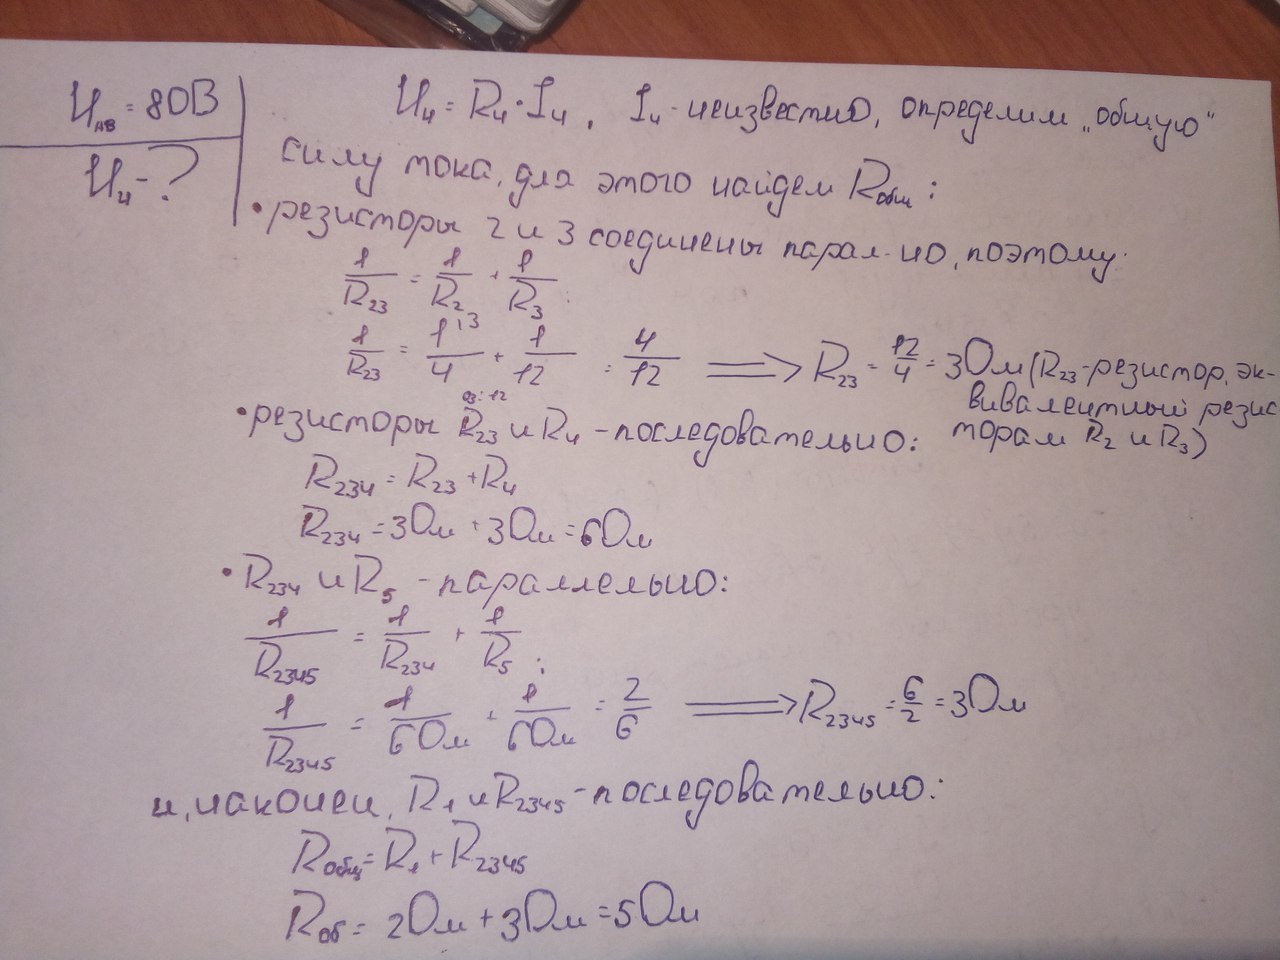 U_AB = 80В
U₄ - ?
U₄ = R₄ · I₄, I₄ - неизвестно, определим „общую“
силу тока, для этого найдем R_общ:
• резисторы 2 и 3 соединены парал-но, поэтому:
1/R₂₃ = 1/R₂ + 1/R₃;
1/R₂₃ = 1\3/4 + 1/12 = 4/12 ⟹ R₂₃ = 12/4 = 3Ом (R₂₃ - резистор, эк-
вивалентный резис
торам R₂ и R₃)
оз: 12
• резисторы R₂₃ и R₄ - последовательно:
R₂₃₄ = R₂₃ + R₄
R₂₃₄ = 3Ом + 3Ом = 6Ом
• R₂₃₄ и R₅ - параллельно:
1/R₂₃₄₅ = 1/R₂₃₄ + 1/R₅;
1/R₂₃₄₅ = 1/6Ом + 1/6Ом = 2/6 ⟹ R₂₃₄₅ = 6/2 = 3Ом
и, наконец, R₁ и R₂₃₄₅ - последовательно:
R_общ = R₁ + R₂₃₄₅
R_об = 2Ом + 3Ом = 5Ом